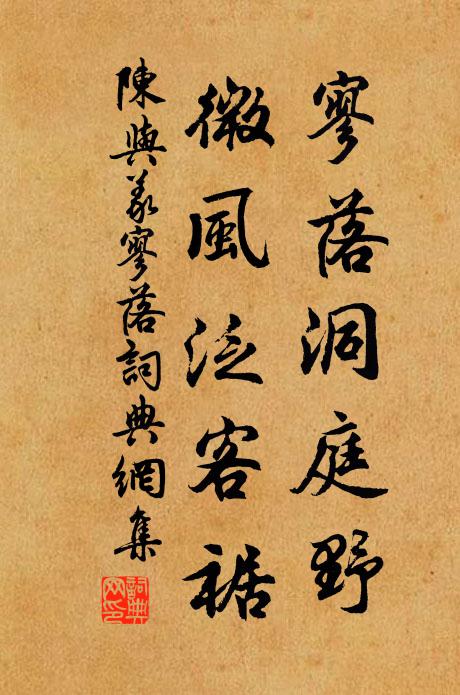 寥落洞庭野
微風泛客裾
陳與義寥落詞典網集
詞典網印